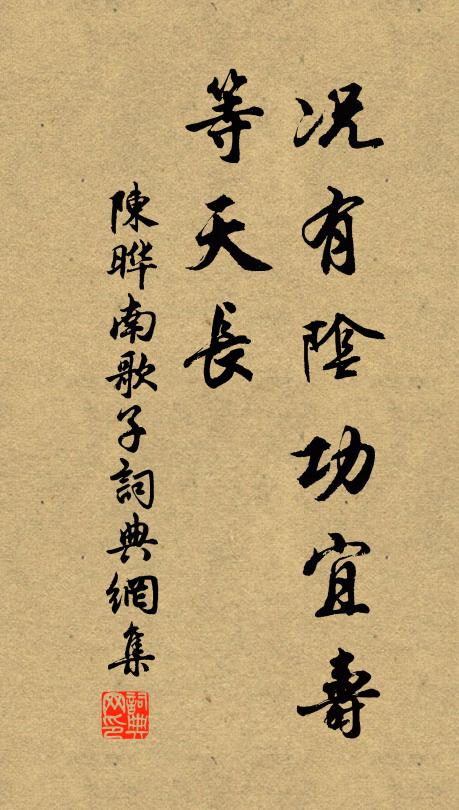 况有陰功宜壽
等天長
陳曄南歌子詞典網集
詞典网印